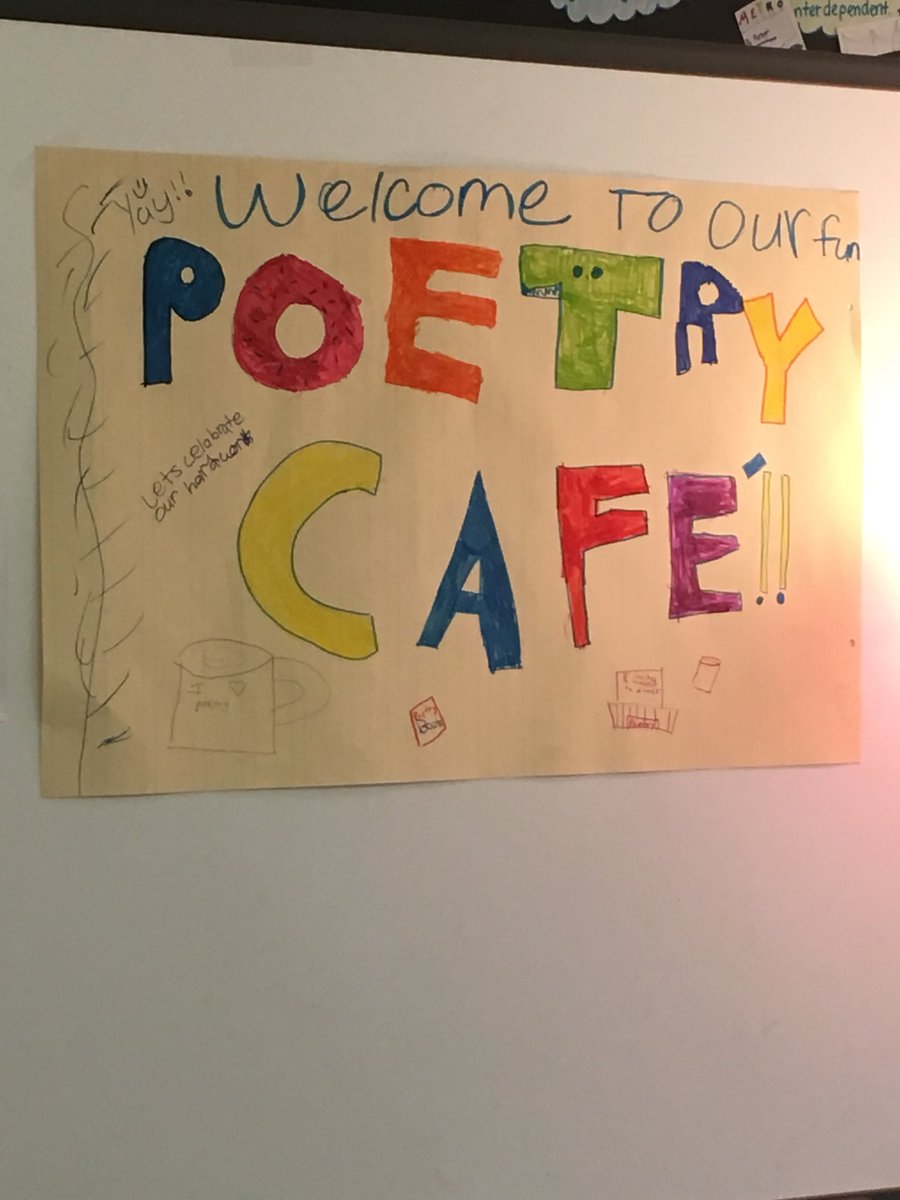 METRO
nterdependent.
Yay!!
Welcome To Our fun
POETRY
CAFÉ!!
Lets celabrate
our hardwork
I ♡
poetry
Poetry